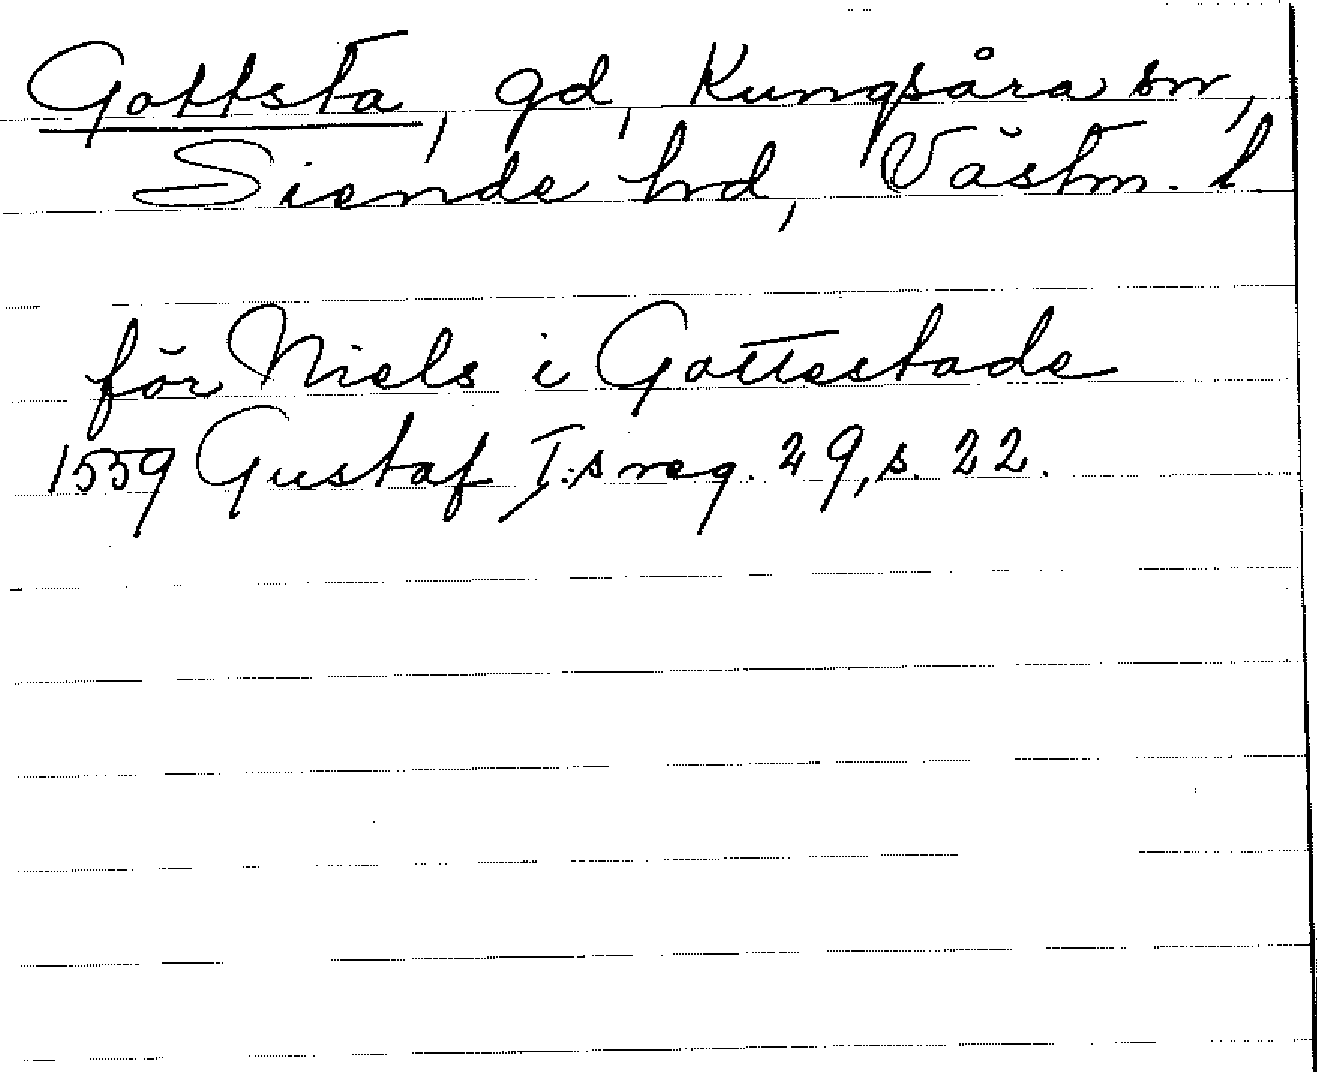 Gottsta, gd, Kungsåra sn,
Siende hd, Västm. l
för Niels i Gottestade
1559 Gustaf I:s reg. 29, s. 22.